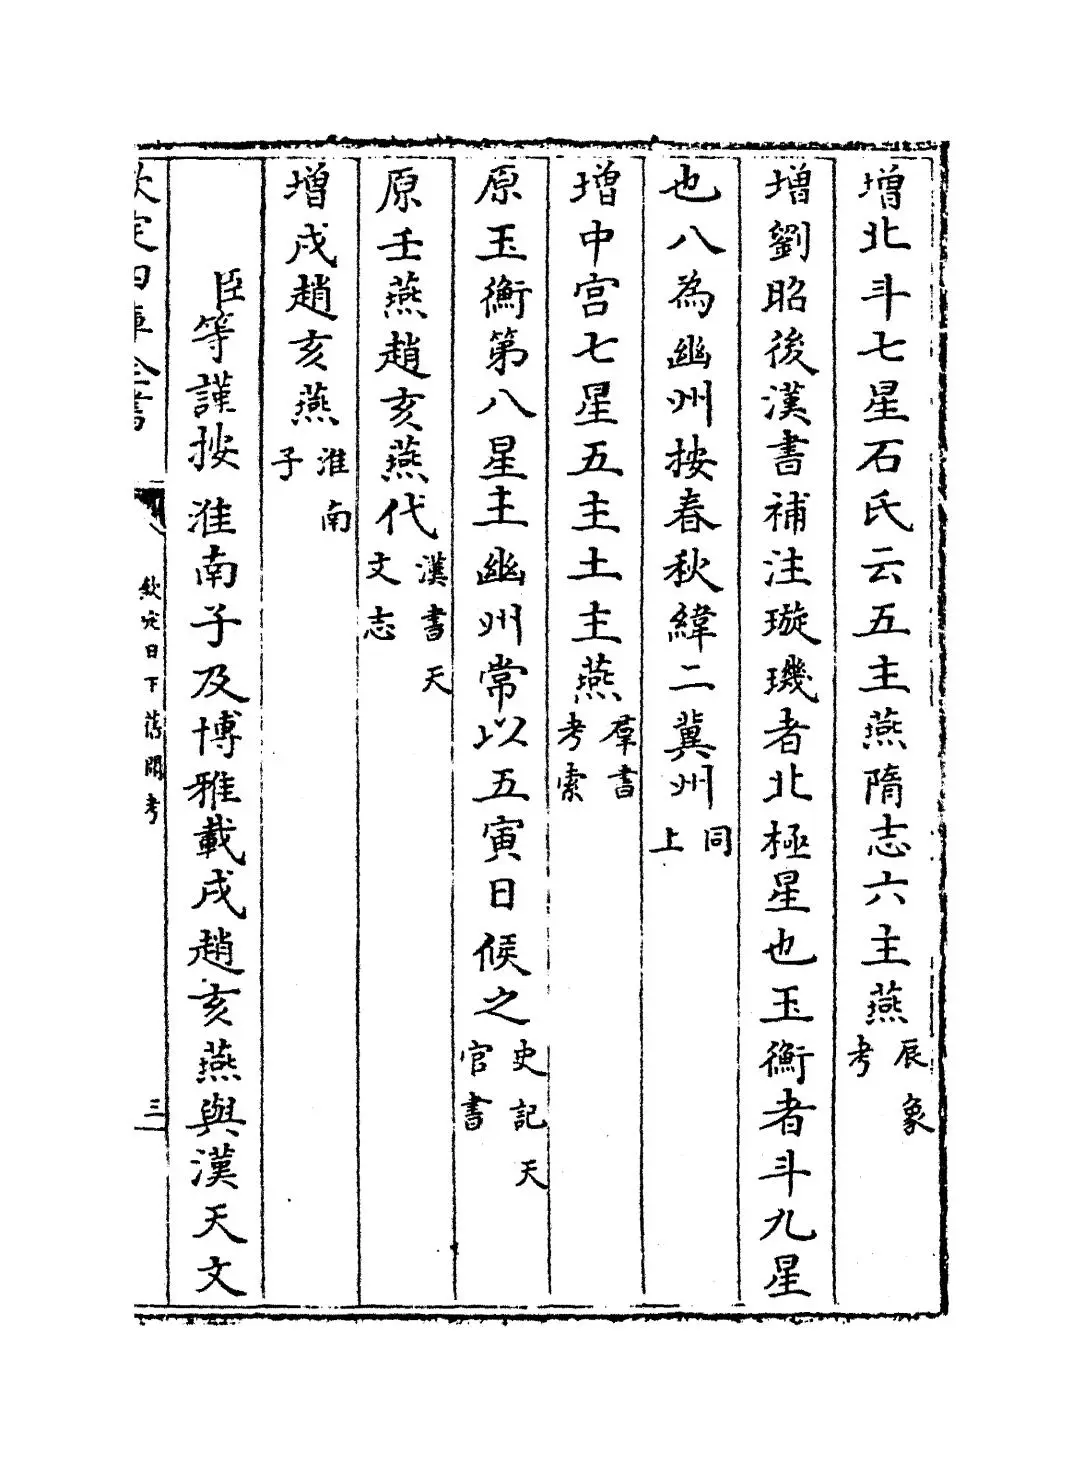 增北斗七星石氏云五主燕隋志六主燕辰象考
增劉昭後漢書補注璇璣者北極星也玉衡者斗九星
也八為幽州按春秋緯二冀州同上
增中宮七星五主土主燕羣書考索
原玉衡第八星主幽州常以五寅日候之史記天官書
原壬燕趙亥燕代漢書天文志
增戌趙亥燕淮南子
臣等謹按淮南子及博雅載戌趙亥燕與漢天文
欽定四庫全書
欽定日下舊聞考
三